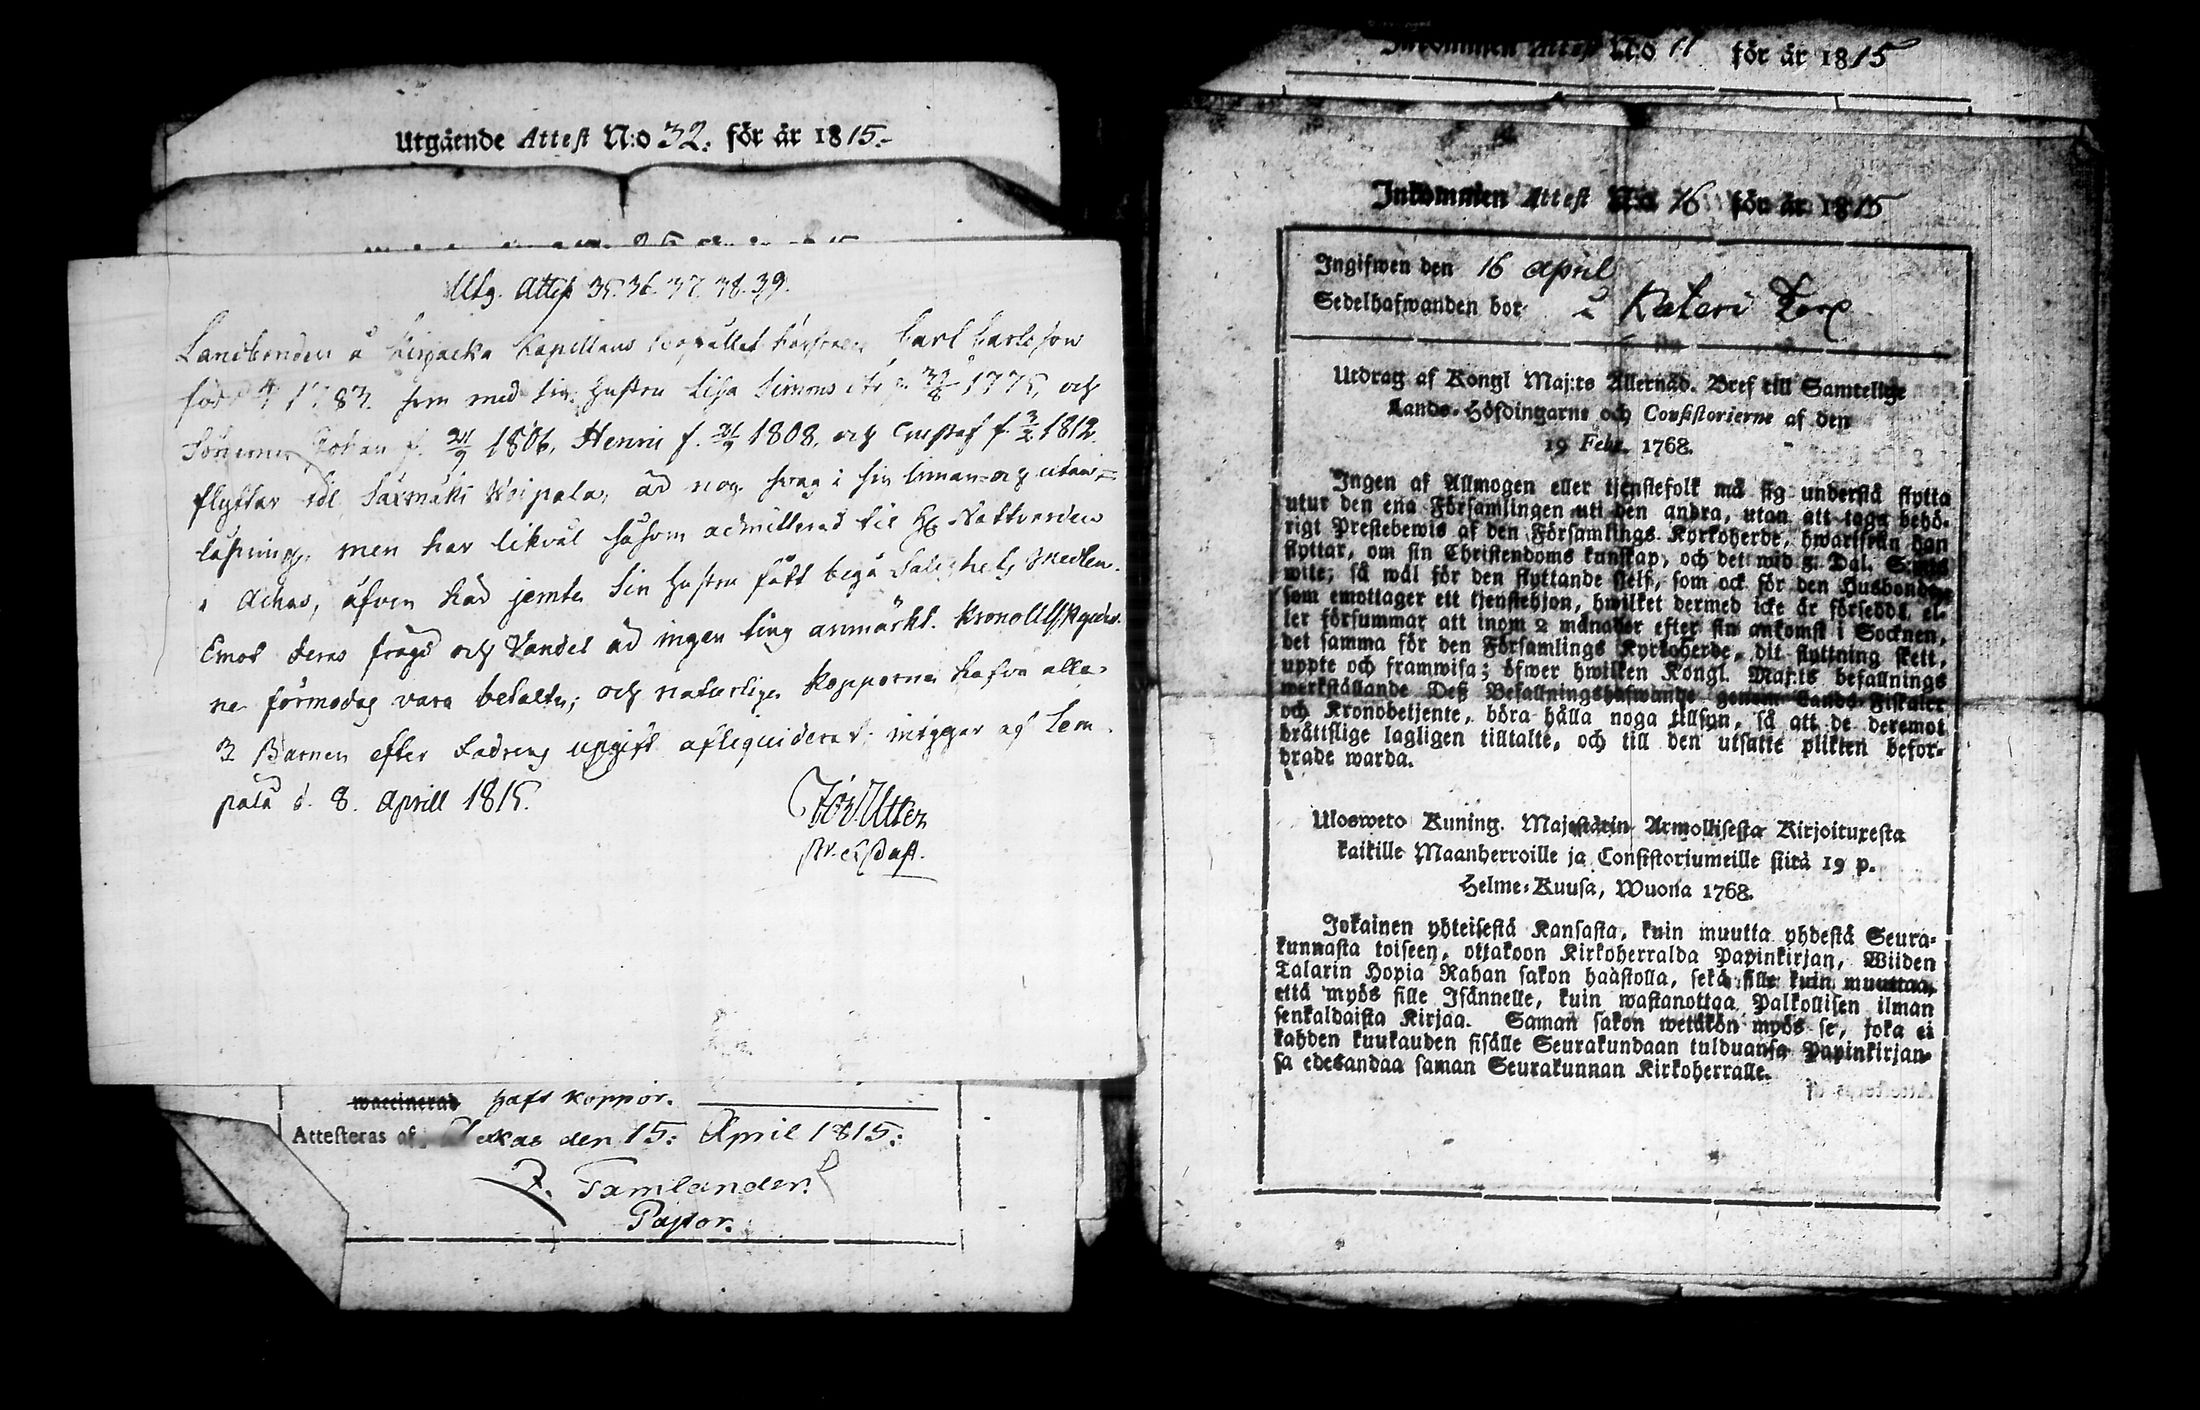 Utgående Attest N:o 32. för år 1815.
Utg. Attest 35. 36. 37. 38. 39.
Landbonden å Kapellans Carl Carlsson
född 1783. som med sin Hustru Lisa Simons dr f. 1775, och
Sönerne Johan f. 21/9 1806, Henric f. 1808, och Gustaf f. 3/2 1812
flyttar til Saxmäki Woipala, är nog svag i sin innan- och utan-
läsning, men har likväl såsom admitterad til Hg Nattvarden
i Achas, äfven här jemte sin Hustru fått begå Salighets Medlen.
Emot deras frägd och Vandel är ingen ting anmärkt. Kronoutskylder
ne förmodas vara betalta; och naturliga kopporna hafva alla
3 Barnen efter Fadrens upgift
pälä d. 8. Aprill 1815.
waccinerad haft koppor.
Attesteras af, den 15: April 1815:
Tamlander.
Pastor.
Inkommen Attest N:o 11 för år 1815
Inkommen Attest N:o 16 för år 1815
Ingifwen den 16 April
Sedelhafwanden bor i Kateri Torp
Utdrag af Kongl Maj:ts Allernåd. Bref till Samtelige
Lands-Höfdingarne och Consistorierne af den
19 Febr. 1768.
Ingen af Allmogen eller tjenstefolk må sig understå flytta
utur den ena Församlingen uti den andra, utan att taga behö-
rigt Prestebewis af den Församlings Kyrkoherde, hwarifrån han
flyttar, om sin Christendoms kunskap, och det wid 5 Dal. S:mts
wite; så wäl för den flyttande sjelf, som ock för den Husbonde,
som emottager ett tjenstehjon, hwilket dermed icke är försedd, el-
ler försummar att inom 2 månader efter sin ankomst i Socknen,
det samma för den Församlings Kyrkoherde, dit flyttning skett,
uppte och framwisa; öfwer hwilken Kongl. Maj:ts befallnings
werkställande Deß Befallningshafwande genom Lands-Fiskaler
och Kronobetjente, böra hålla noga tillsyn, så att de deremot
brättslige lagligen tilltalte, och till den utsatte plikten befor-
drade warda.
Ulosweto Kuning. Majestätin Armollisesta Kirjoituxesta
kaikille Maanherroille ja Consistoriumeille siitä 19 p.
Helme-Kuusa, Wuonna 1768.
Jokainen yhteisestä Kansasta, kuin muutta yhdestä Seura-
kunnasta toiseen, ottakoon Kirkoherralda Papinkirjan, Wiiden
Talarin Hopia Rahan sakon haastolla, sekä sille kuin muuttaa,
että myös sille Isännelle, kuin wastanottaa Palkollisen ilman
senkaldaista Kirjaa. Saman sakon wetäkön myös se, joka ei
kahden kuukauden sisälle Seurakundaan tulduansa Papinkirjan-
sa edesandaa saman Seurakunnan Kirkoherralle.